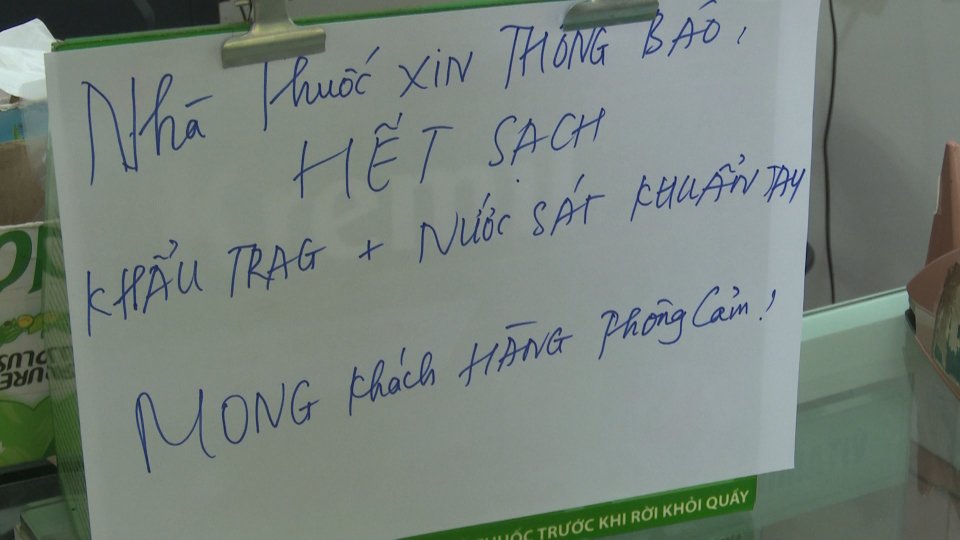 Nhà thuốc XIN THÔNG BÁO,
HẾT SẠCH
KHẨU TRAG + NƯỚC SÁT KHUẨN TAY
MONG khách HÀNG phông Cảm!
HUỐC TRƯỚC KHI RỜI KHỎI QUẦY
URE
PLUS